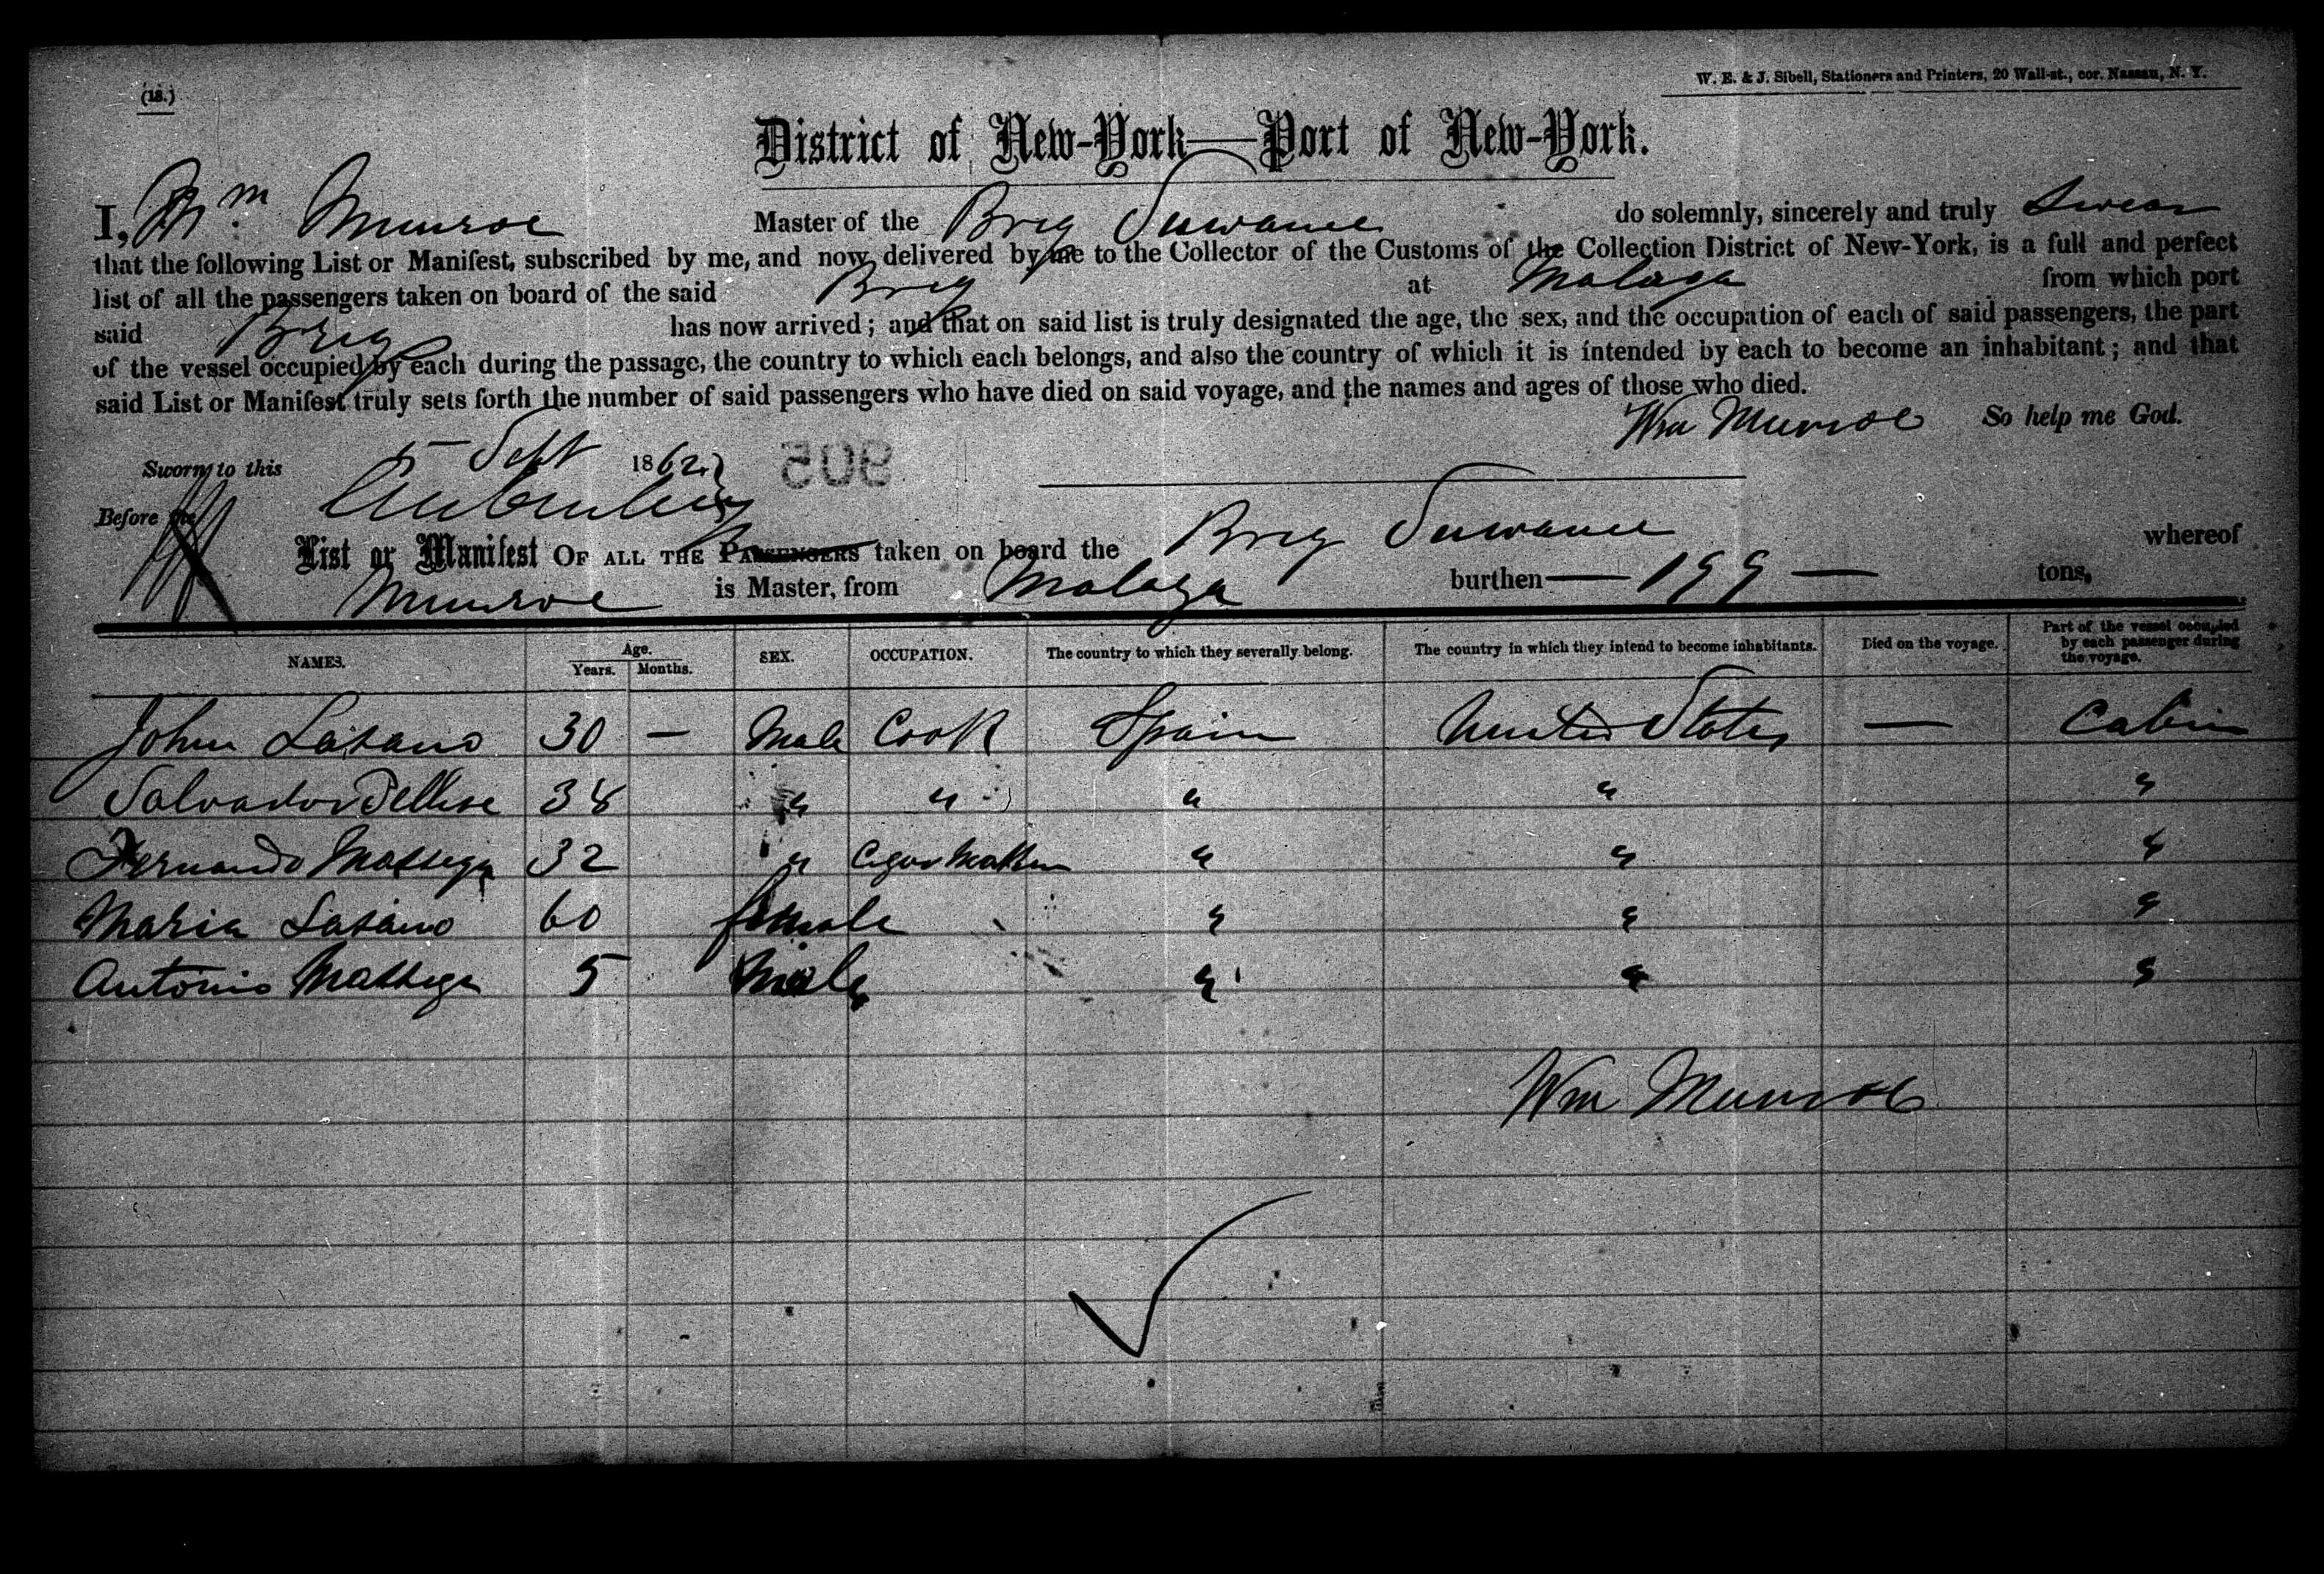 (18.)
W. E. & J. Sibell, Stationers and Printers, 20 Wall-st., cor. Nassau, N. Y.
District of New-York—Port of New-York.
I, Wm Munroe Master of the Brig Suwanee do solemnly, sincerely and truly Swear
that the following List or Manifest, subscribed by me, and now delivered by me to the Collector of the Customs of the Collection District of New-York, is a full and perfect
list of all the passengers taken on board of the said Brig at Malaga from which port
said Brig has now arrived; and that on said list is truly designated the age, the sex, and the occupation of each of said passengers, the part
of the vessel occupied by each during the passage, the country to which each belongs, and also the country of which it is intended by each to become an inhabitant; and that
said List or Manifest truly sets forth the number of said passengers who have died on said voyage, and the names and ages of those who died.
Wm Munroe So help me God.
Sworn to this 5 Sept 1862
Before me
List or Manifest OF ALL THE PASSENGERS taken on board the Brig Suwanee whereof
Munroe is Master, from Malaga burthen — 199 — tons,
NAMES. Age. Years. Months. SEX. OCCUPATION. The country to which they severally belong. The country in which they intend to become inhabitants. Died on the voyage. Part of the vessel occupied by each passenger during the voyage.
John Lasano 30 — Male Cook Spain United States — Cabin
Salvador 38 " " " " "
Fernando 32 " " " "
Maria Lasano 60 female " " "
Antonio 5 Male " " "
Wm Munroe